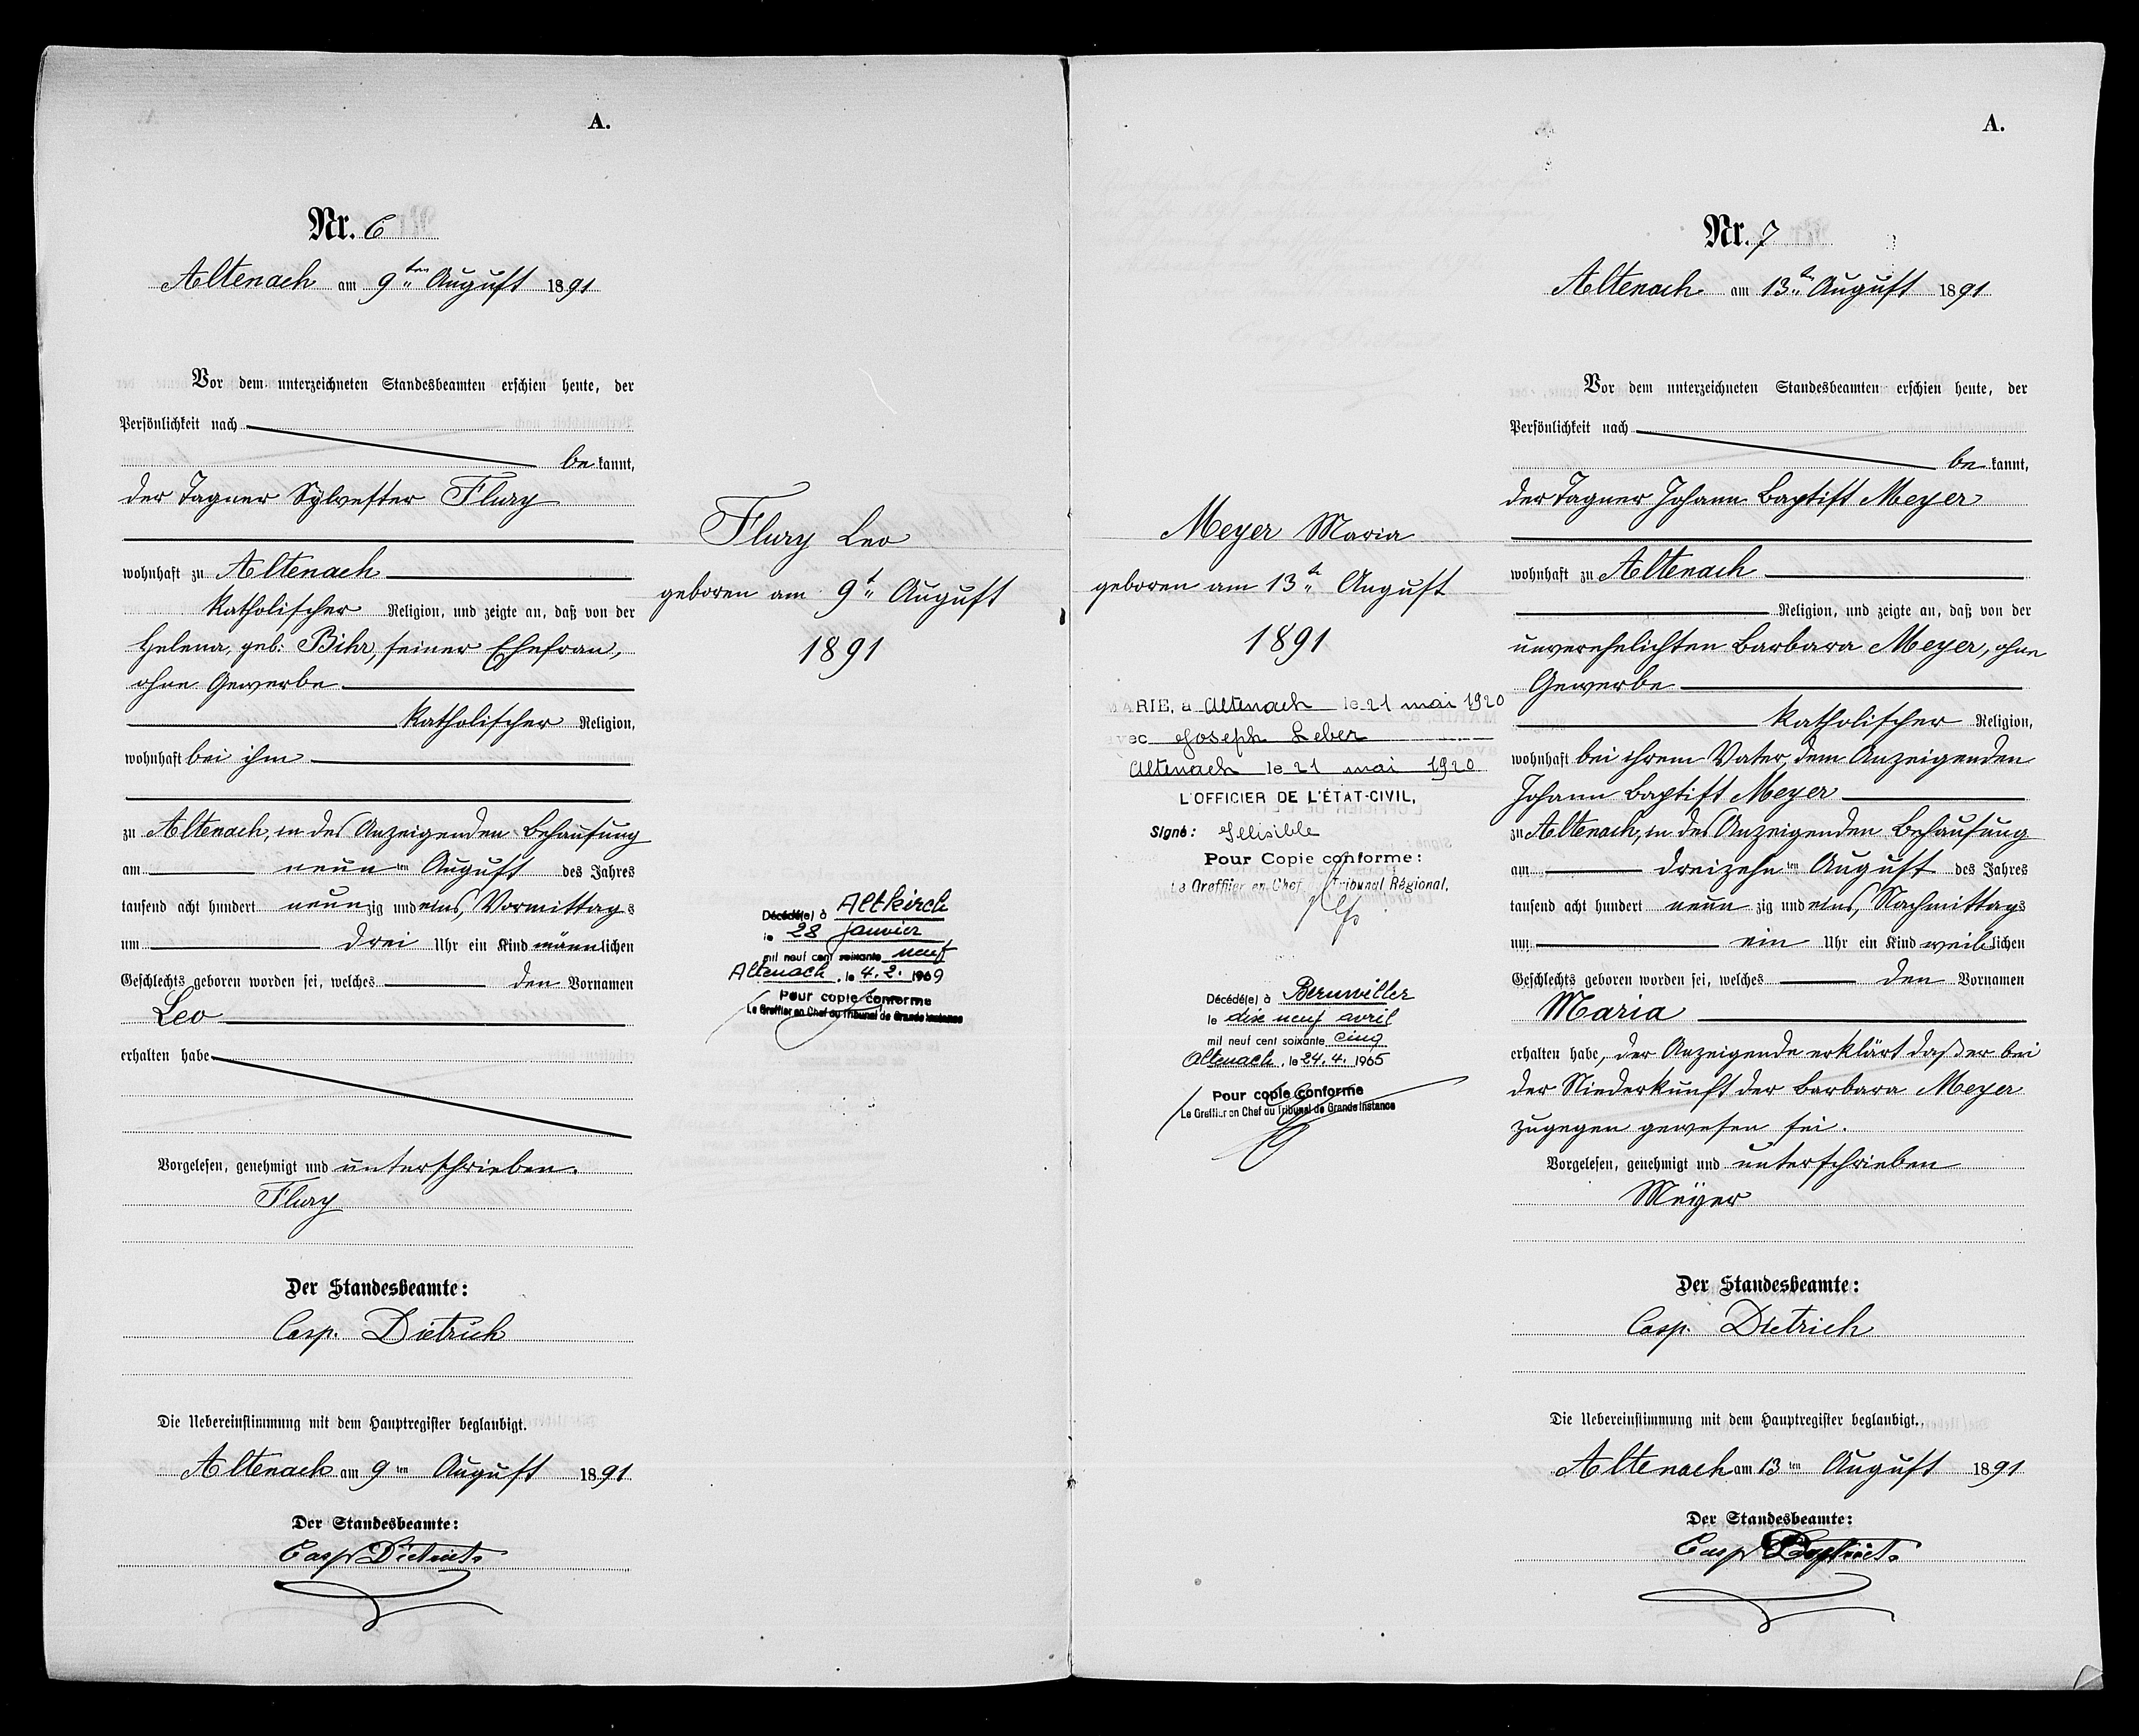 A.
Nr. 6
Altenach am 9ten August 1891
Vor dem unterzeichneten Standesbeamten erschien heute, der
Persönlichkeit nach
be kannt,
der Tagner Sylvester Flury
wohnhaft zu Altenach
katholischer Religion, und zeigte an, daß von der
Helena, geb: Bihr, seiner Ehefrau,
ohne Gewerbe
katholischer Religion,
wohnhaft bei ihm
zu Altenach, in des Anzeigenden Behausung
am neun ten August des Jahres
tausend acht hundert neunzig und eins, Vormittags
um drei Uhr ein Kind männlichen
Geschlechts geboren worden sei, welches den Vornamen
Leo
erhalten habe
Vorgelesen, genehmigt und unterschrieben.
Flury
Der Standesbeamte:
Casp. Dietrich
Die Uebereinstimmung mit dem Hauptregister beglaubigt.
Altenach am 9ten August 1891
Der Standesbeamte:
Casp Dietrich
Flury Leo
geboren am 9t August
1891
Décédé(e) à Altkirch
le 28 janvier
mil neuf cent soixante neuf
Altenach, le 4.2. 1969
Pour copie conforme
Le Greffier en Chef du Tribunal de Grande Instance
Meyer Maria
geboren am 13tn August
1891
MARIE, à Altenach le 21 mai 1920
avec Joseph Leber
Altenach le 21 mai 1920
L'OFFICIER DE L'ÉTAT-CIVIL,
Signé: Illisible
Pour Copie conforme:
Le Greffier en Chef Tribunal Régional,
Décédé(e) à Bernwiller
le dix neuf avril
mil neuf cent soixante cinq
Altenach, le 24.4. 1965
Pour copie conforme
Le Greffier en Chef du Tribunal de Grande Instance
A.
Nr. 7
Altenach am 13ten August 1891
Vor dem unterzeichneten Standesbeamten erschien heute, der
Persönlichkeit nach
be kannt,
der Tagner Johann Baptist Meyer
wohnhaft zu Altenach
Religion, und zeigte an, daß von der
unverehelichten Barbara Meyer, ohne
Gewerbe
katholischer Religion,
wohnhaft bei ihrem Vater, dem Anzeigenden
Johann Baptist Meyer
zu Altenach, in des Anzeigenden Behausung
am dreizehn ten August des Jahres
tausend acht hundert neun zig und eins, Nachmittags
um ein Uhr ein Kind weiblichen
Geschlechts geboren worden sei, welches den Vornamen
Maria
erhalten habe, der Anzeigende erklärt daß er bei
der Niederkunft der Barbara Meyer
zugegen gewesen sei.
Vorgelesen, genehmigt und unterschrieben
Meÿer
Der Standesbeamte:
Casp. Dietrich
Die Uebereinstimmung mit dem Hauptregister beglaubigt.
Altenach am 13ten August 1891
Der Standesbeamte:
Casp